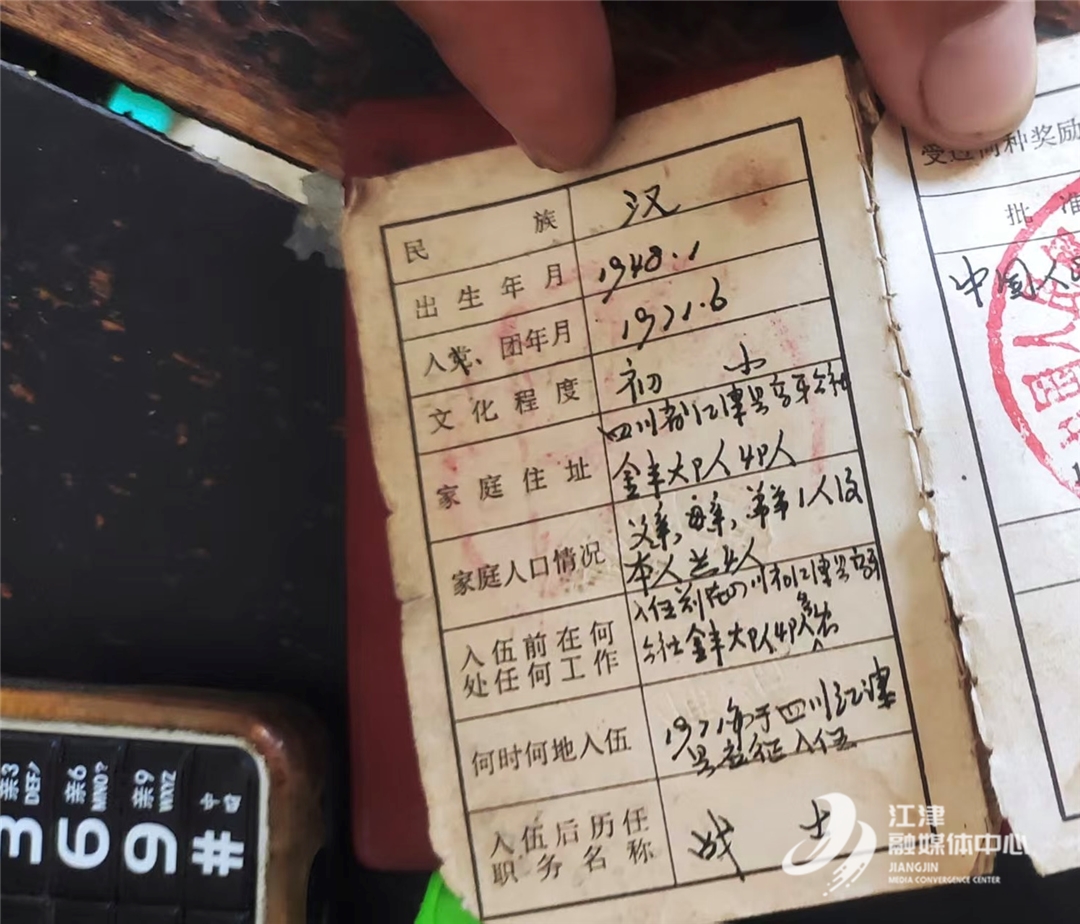 民族 汉
出生年月 1948.1
入党、团年月 1971.6
文化程度 初小
家庭住址 四川省江津县
金丰大队4队
家庭人口情况 父亲,母亲,弟弟1人及
本人共4人
入伍前在何
处任何工作
入伍前在四川省江津县
公社金丰大队4队
何时何地入伍 1971年于四川江津
县应征入伍
入伍后历任
职务名称 战士
受过何种奖励
批准
中国人民
亲3
DEF/
3
亲6
MNO?
6
亲9
WXYZ
9
#
江津
融媒体中心
JIANGJIN
MEDIA CONVERGENCE CENTER